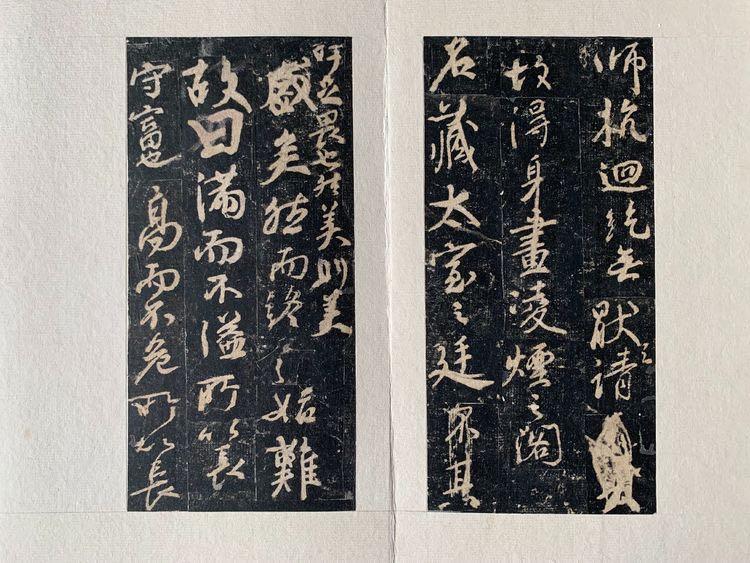 师抗迴纥無厭之請
故得身畫凌煙之閣
名藏太室之廷
吁足畏也然美則美
盛矣然而終之始難
故曰滿而不溢所以長
守富也高而不危所以長